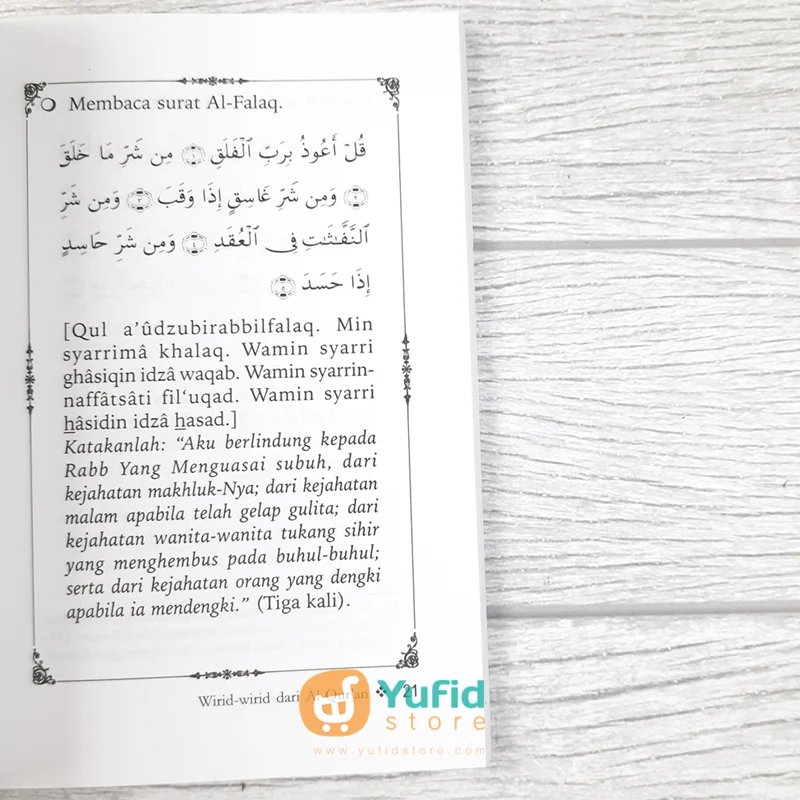 ❍ Membaca surat Al-Falaq.
قُلْ أَعُوذُ بِرَبِّ ٱلْفَلَقِ ١ مِن شَرِّ مَا خَلَقَ
٢ وَمِن شَرِّ غَاسِقٍ إِذَا وَقَبَ ٣ وَمِن شَرِّ
ٱلنَّفَّـٰثَـٰتِ فِى ٱلْعُقَدِ ٤ وَمِن شَرِّ حَاسِدٍ
إِذَا حَسَدَ ٥
[Qul a’ûdzubirabbilfalaq. Min
syarrimâ khalaq. Wamin syarri
ghâsiqin idzâ waqab. Wamin syarrin-
naffâtsâti fil‘uqad. Wamin syarri
hâsidin idzâ hasad.]
Katakanlah: “Aku berlindung kepada
Rabb Yang Menguasai subuh, dari
kejahatan makhluk-Nya; dari kejahatan
malam apabila telah gelap gulita; dari
kejahatan wanita-wanita tukang sihir
yang menghembus pada buhul-buhul;
serta dari kejahatan orang yang dengki
apabila ia mendengki.” (Tiga kali).
Wirid-wirid dari Al-Qur'an ❖ 21
Yufid
store
www.yufidstore.com